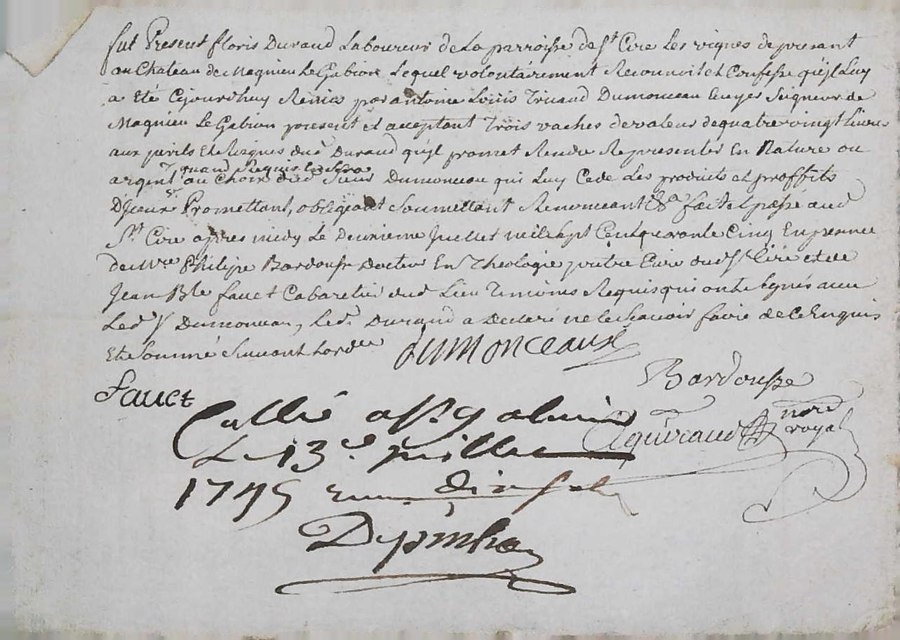 fut Present floris Durand Laboureur de La parroisse de St Cire Les vignes de present
au Chateau de Magnieu Le Gabion Lequel volontairement Reconnoit et Confesse qu'il Luy
a Eté Cejourdhuy Remis par antoine Louis Dumonceau Ecuyer Seigneur de
Magnieu Le Gabion present et acceptant Trois vaches de valeur de quatre vingt Livres
aux perils Et Risques dud Durand qu'il promet Rendre Representer En Nature ou
quand Requis
argent au Choix dud Sieur Dumonceau qui Luy Cede Les produits et proffits
D'jceux Promettant, obligeant Soumettant Renonceant &a fait et passé aud
St Cire apres midy Le Deuxieme Juillet mil sept Cent quarante Cinq En presence
de Mre Philipe Bardousse Docteur En Theologie prêtre Curé dud St Cire et de
Jean Bte fauct Cabaretier dud Lieu Temoins Requis qui ont Signés avec
Led Sr Dumonceau, Led Durand a Declaré ne le Scavoir faire de Ce Enquis
Et Sommé Suivant Lord.ce
dumonceaux
Bardousse
fauct
nore
royal
Le 13e juillet
1745